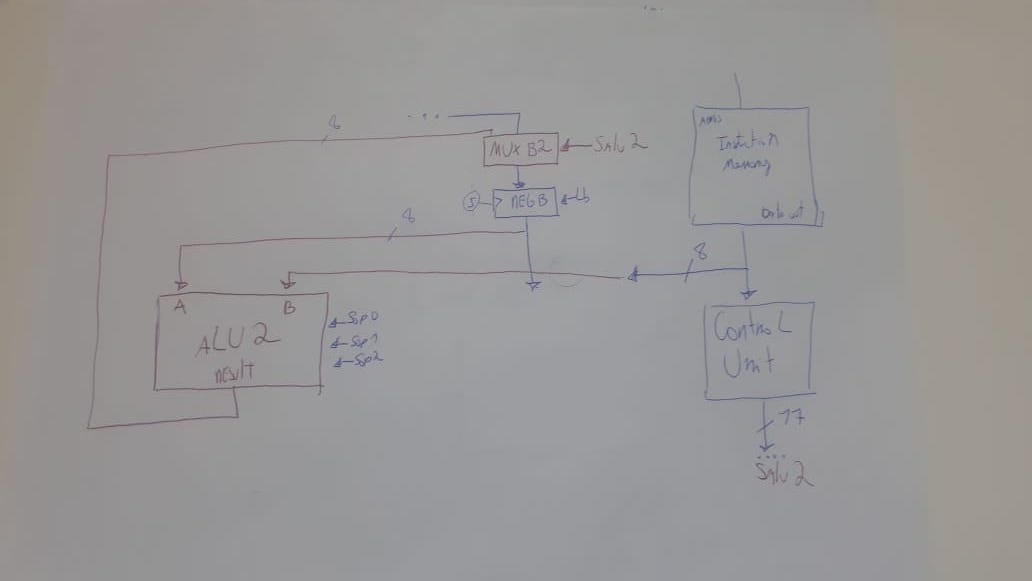 8
...
MUX B2
Salu 2
REG B
Lb
8
A
B
ALU 2
result
Sop0
Sop1
Sop2
Instruction
Memory
Data out
8
Control
Unit
17
....
Salu 2